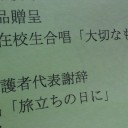 品贈呈
在校生合唱「大切なも
護者代表謝辞
「旅立ちの日に」